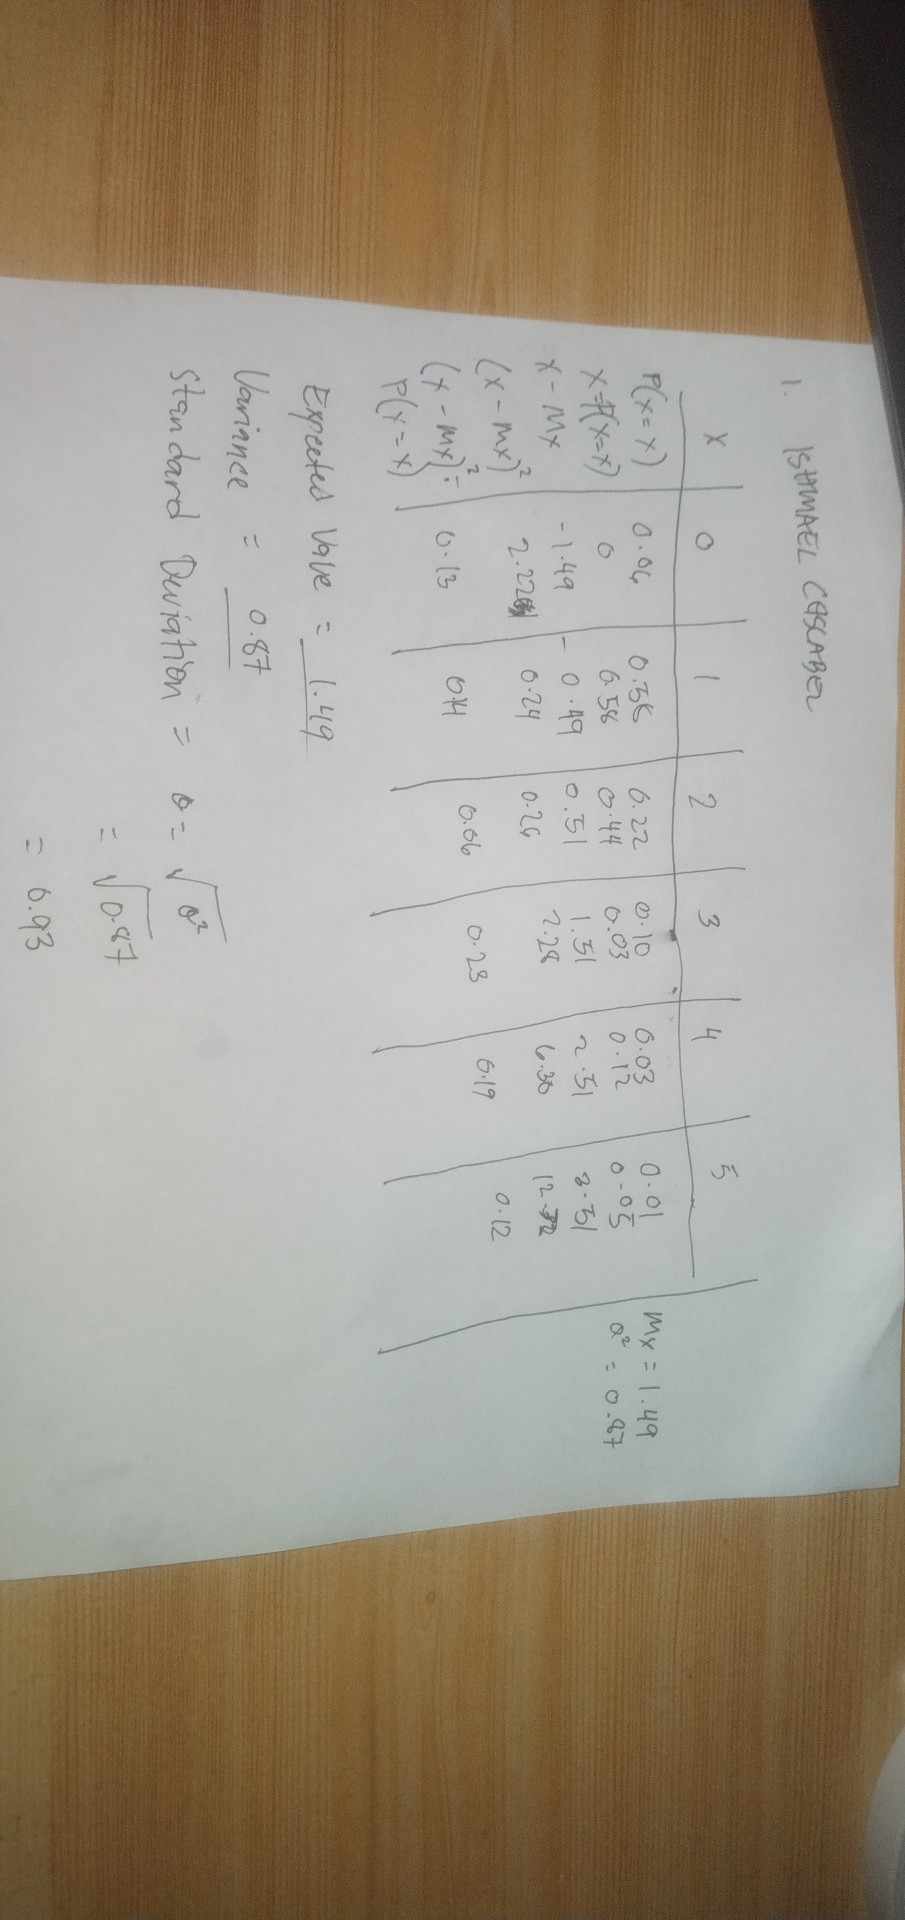 1. ISHMAEL CASCABEL
X 0 1 2 3 4 5
P(X=X) 0.06 0.58 0.22 0.10 0.03 0.01 Mx = 1.49
X=P(X=X) 0 0.58 0.44 0.03 0.12 0.05 σ² = 0.87
X - Mx -1.49 -0.49 0.51 1.51 2.51 3.51
(X - Mx)² 0.24 0.26 2.28 6.30
(X - Mx)² = 0.13 0.14 0.06 0.23 0.19 0.12
P(X=X)
Expected Valve = 1.49
Variance = 0.87
Standard Deviation = σ = √σ²
= √0.87
= 0.93